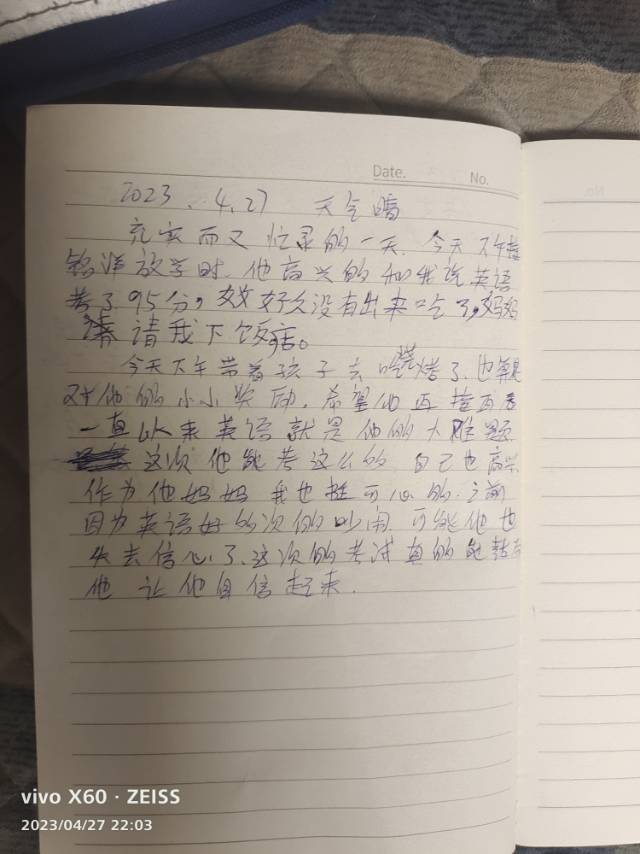 Date.
No.
2023.4.27 天气晴
充实而又忙录的一天.今天下午接
铭洋放学时.他高兴的和我说英语
考了95分,好久没有出来吃了,妈妈
请我下饭店。
今天下午带着孩子去吃烧烤了.也算是
对他的小小奖励.希望他再接再
一直以来英语就是他的大难题
这次他能考这么的 自己也高兴
作为他妈妈 我也挺开心的.之前
因为英语好多次的吵闹 可能他也
失去信心了.这次的考试真的能鼓
他 让他自信起来.
vivo X60 · ZEISS
2023/04/27 22:03